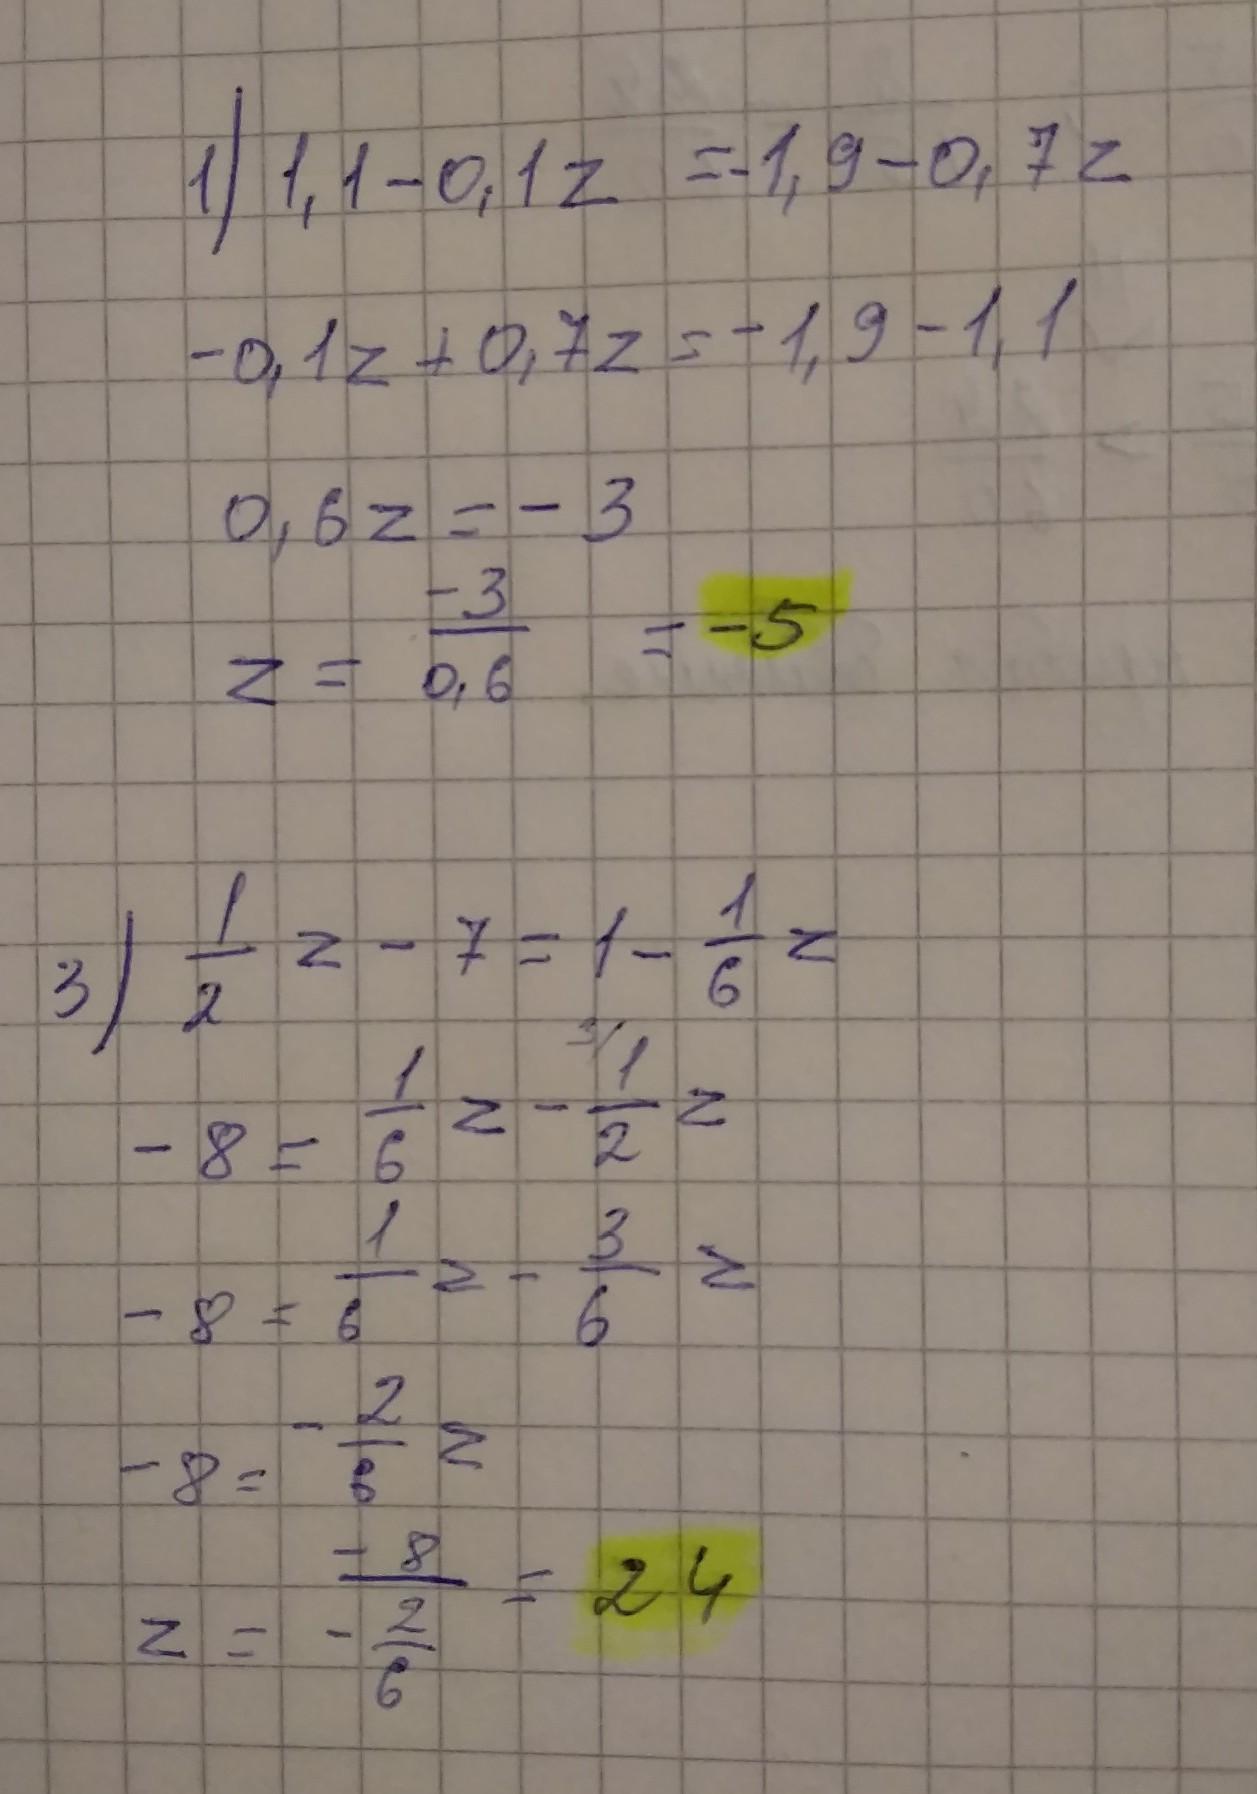 1) 1,1-0,1z =-1,9-0,7z
-0,1z+0,7z=-1,9-1,1
0,6z=-3
z= -3/0,6 =-5
3) 1/2 z-7=1-1/6 z
-8=1/6 z- 3/ 1/2 z
-8=1/6 z-3/6 z
-8=-2/6 z
z= -8/-2/6 =24